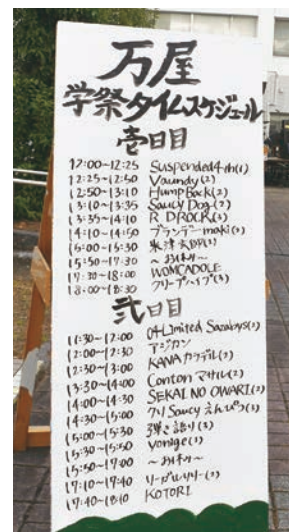 万屋
学祭タイムスケジュール
壱日目
12:00~12:25 Suspended 4th(1)
12:25~12:50 Vaundy(2)
12:50~13:10 Hump Back(2)
13:10~13:35 Saucy Dog(2)
13:35~14:10
14:10~14:50 maki(2)
15:50~17:30 ~お休み~
17:30~18:00 WOMCADOLE
18:00~18:30 クリープハイプ(3)
弐日目
11:30~12:00 04 Limited Sazabys(2)
12:00~12:30 アジカン
12:30~13:00 KANA
13:30~14:00 Conton
14:00~14:30 SEKAI NO OWARI(2)
14:30~15:00 クリ Saucy えんぴつ(3)
15:00~15:30 弾き語り(3)
15:30~15:50 yonige(3)
15:50~17:00 ~お休み~
17:10~17:40 リーガルリリー(2)
17:40~18:10 KOTORI